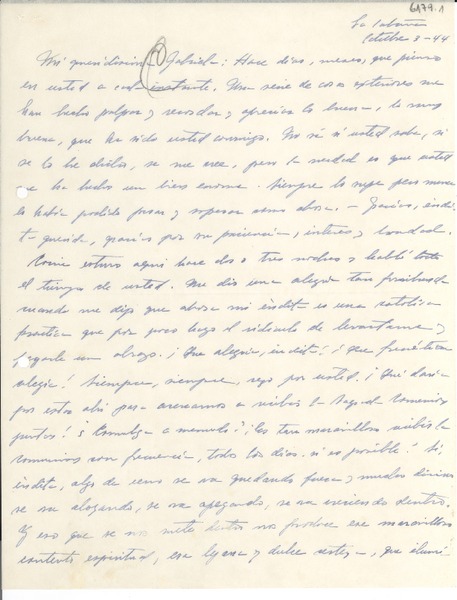 6179.1
La Cabaña
Octubre 3-44
Mi queridísima Gabriela: Hace días, meses, que pienso
en usted a cada instante. Una serie de cosas exteriores me
han hecho palpar y recordar y apreciar lo buena, lo muy
buena, que ha sido usted conmigo. No sé si usted sabe, si
se lo he dicho, se me cree, pero la verdad es que usted
me ha hecho un bien enorme. Siempre lo supe pero nunca
lo había podido pesar y sopesar como ahora. - Gracias,
querida, gracias por su paciencia, interés y bondad.
estuvo aquí hace dos o tres noches y habló todo
el tiempo de usted. Me dio una alegría tan
cuando me dijo que ahora mi es una católica
práctica que por poco hago el ridículo de levantarme y
pegarle un abrazo. ¡Qué alegría, ! ¡Qué frenética
alegría! Siempre, siempre, rogé por usted. ¡Qué daría
por estar allí para acercarnos a recibir la Sagrada Comunión
juntas! ¿Comulga a menudo? ¡Es tan maravilloso recibir la
comunión con frecuencia, todos los días si es posible! Sí,
, algo de uno se va quedando fuera y mucho divino
se va alojando, se va apegando, se va creciendo dentro.
Y eso que se nos mete dentro nos produce ese maravilloso
contento espiritual, esa ligera y dulce certeza, que